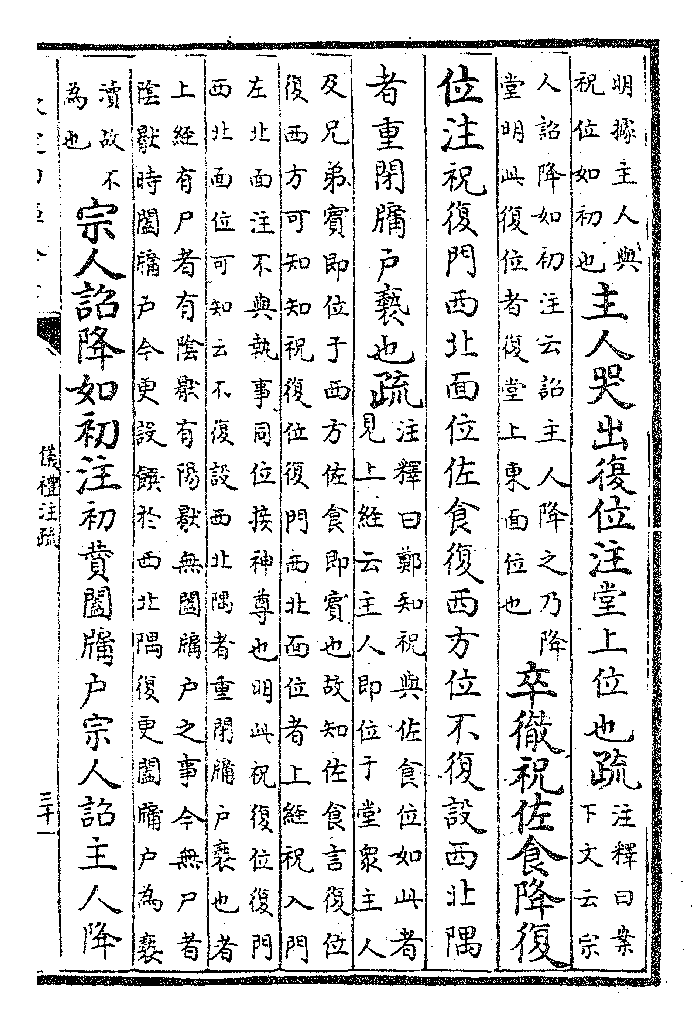 明據主人與
祝位如初也
主人哭出復位注堂上位也疏
注釋曰案
下文云宗
人詔降如初注云詔主人降之乃降
堂明此復位者復堂上東面位也
卒徹祝佐食降復
位注祝復門西北面位佐食復西方位不復設西北隅
者重閉牖戶褻也疏
注釋曰鄭知祝與佐食位如此者
見上經云主人即位于堂衆主人
及兄弟賓即位于西方佐食即賓也故知佐食言復位
復西方可知知祝復位復門西北面位者上經祝入門
左北面注不與執事同位接神尊也明此祝復位復門
西北面位可知云不復設西北隅者重閉牖戶褻也者
上經有尸者有陰厭有陽厭無闔牖戶之事今無尸者
陰厭時闔牖戶今更設饌於西北隅復更闔牖戶為褻
瀆故不
為也
宗人詔降如初注初賛闔牖戶宗人詔主人降
儀禮注疏
三十一